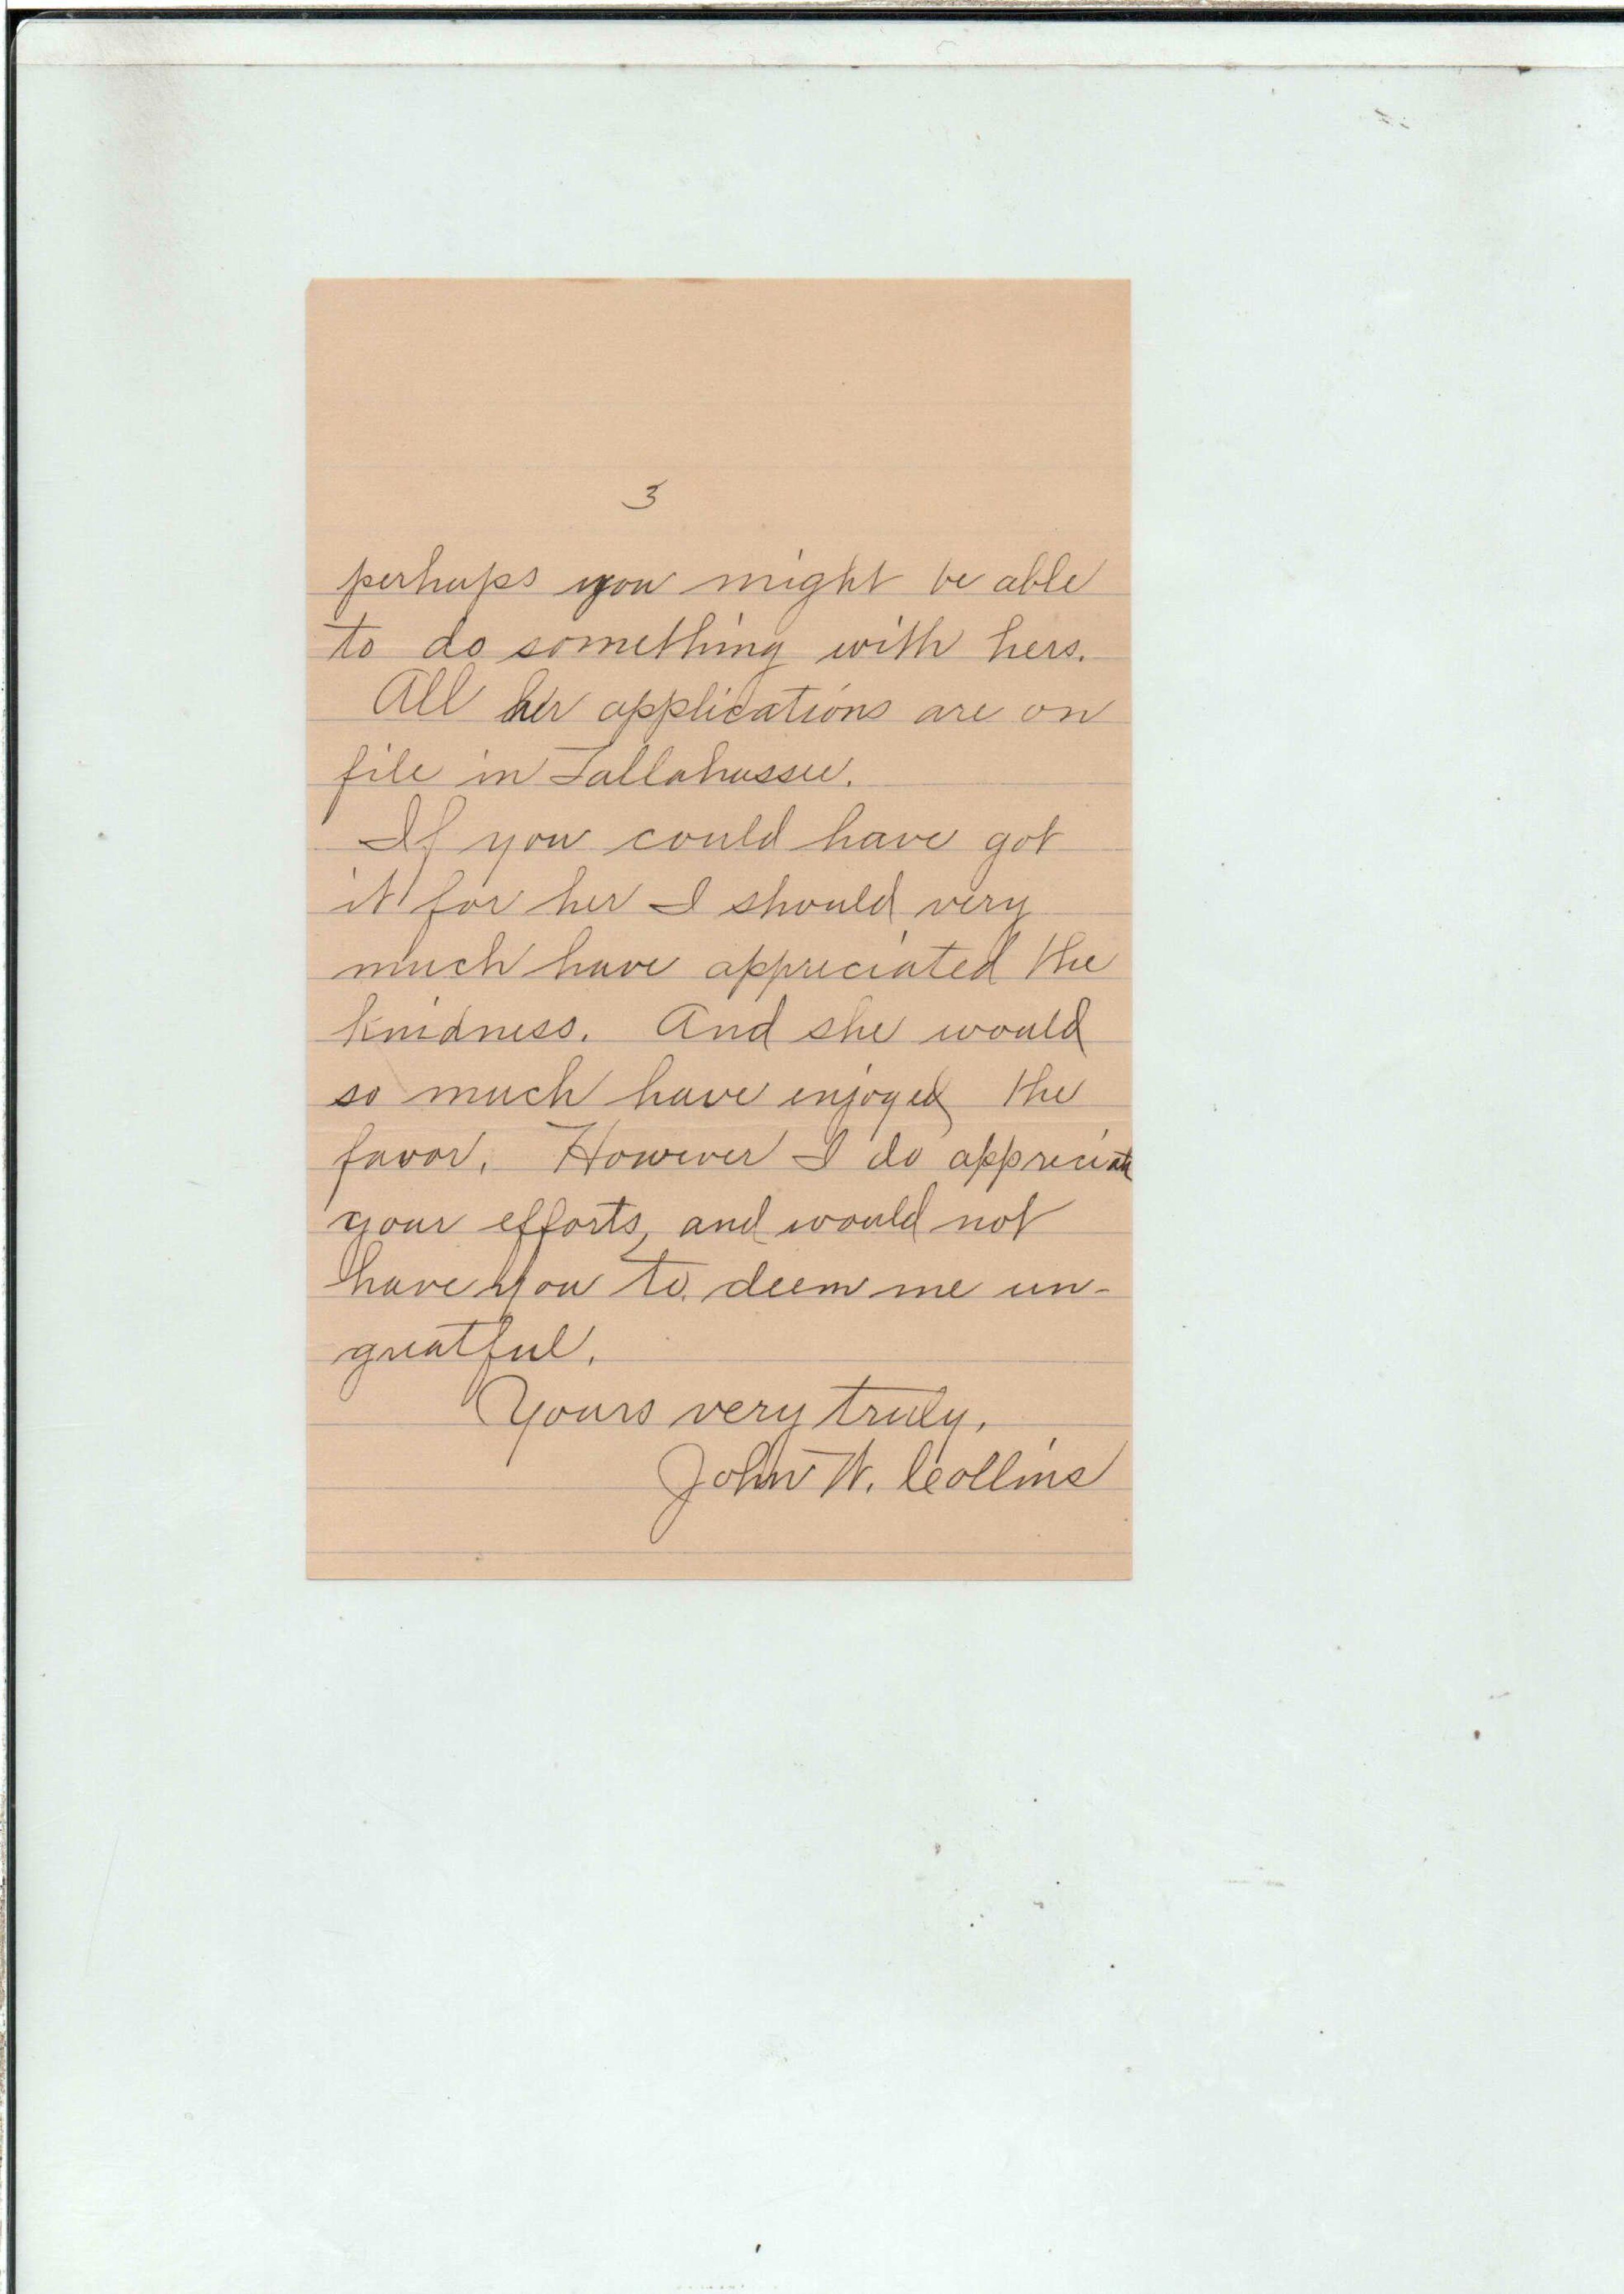 3
perhaps you might be able
to do something with hers.
All her applications are on
file in Tallahassee.
If you could have got
it for her I should very
much have appreciated the
kindness. And she would
so much have enjoyed the
favor. However I do appreciate
your efforts, and would not
have you to deem me un-
greatful.
Yours very truly,
John W. Collins